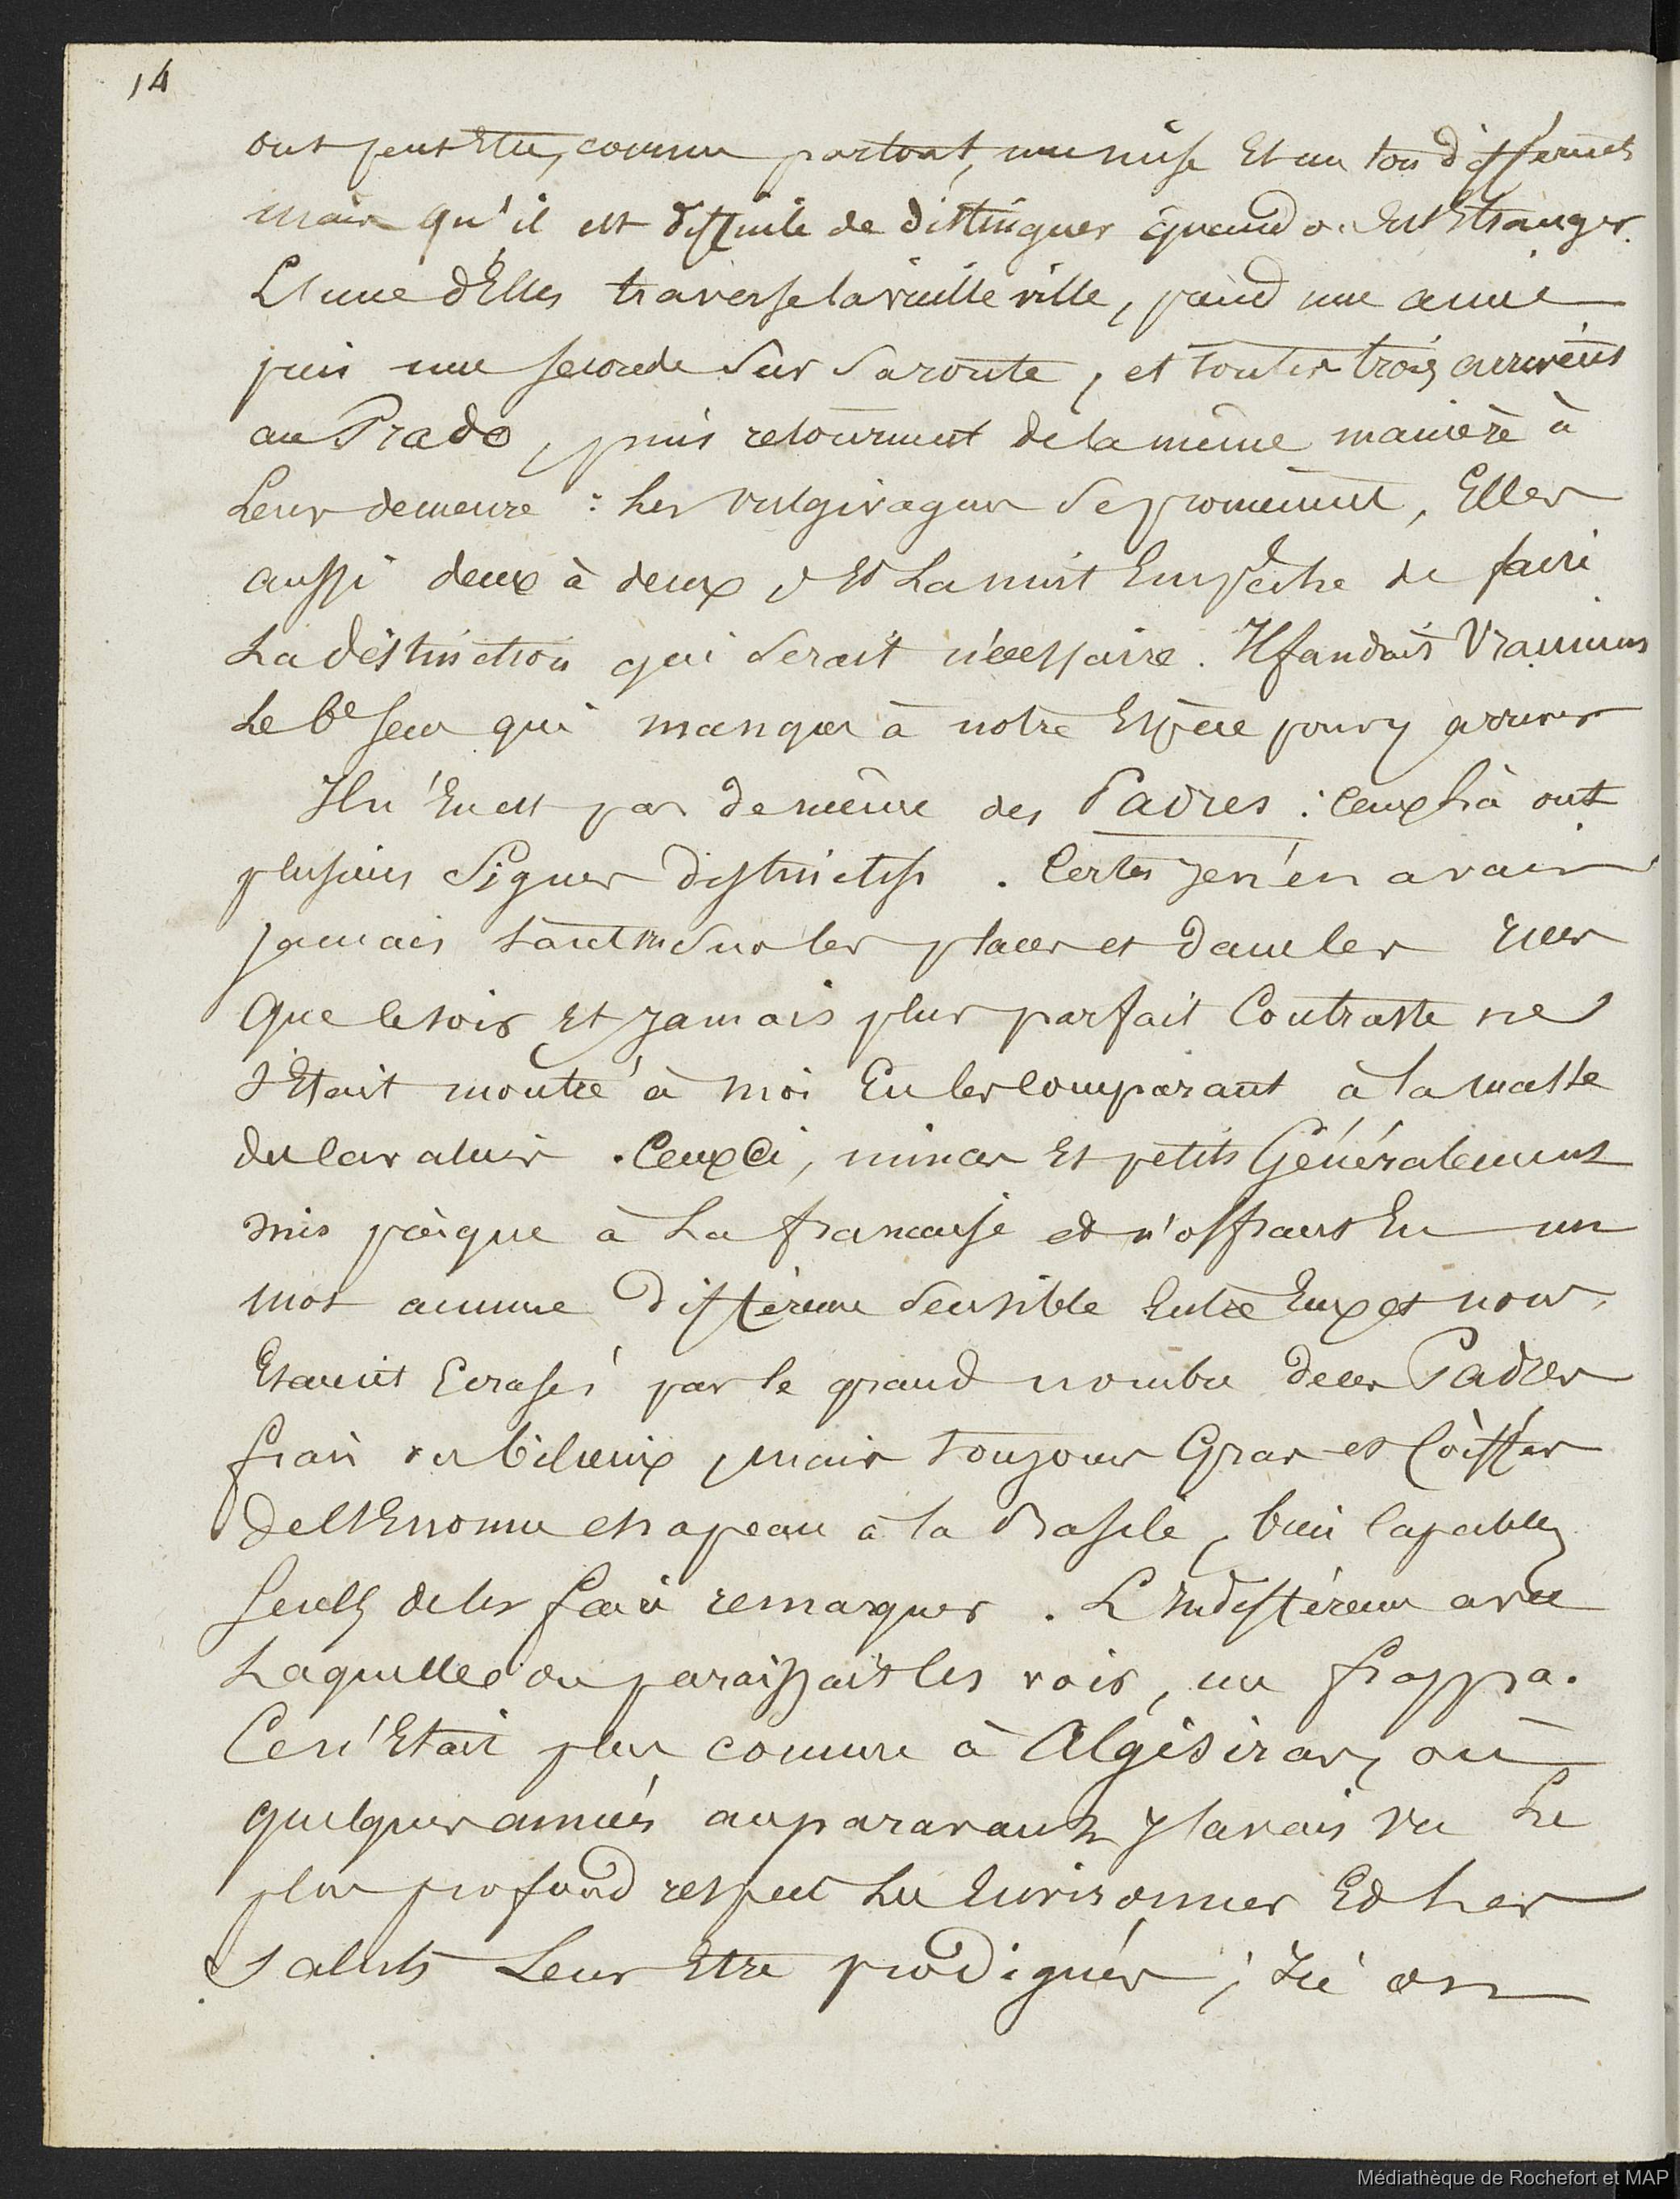 14
ont peut Etre, comme partout, une mise Et un ton différents
mais qu'il est difficile de distinguer quand on Est Etranger.
L'une d'Elles traverse la vieille ville, prend une amie
puis une seconde Sur Sa route, et toutes trois arrivent
au Prado, puis retournent de la même manière à
Leur demeure : Les vulgivagues Se promenent, Elles
aussi deux à deux, Et La nuit Empêche de faire
La distinction qui Serait nécessaire. Il faudrait Vraiment
Le 6e Sens qui manque à notre Espèce pour y arriver
Il n'En est pas de même des Padres : Ceux Là ont
plusieurs Signes distinctifs. Certes je n'en avais
jamais tant vu Sur les places et dans les rues
que le soir Et jamais plus parfait Contraste ne
S'Etait montré à moi En les comparant à la masse
des
Ceux Ci, minces Et petits Généralement
mis presque à La française et n'offrant En un
mot aucune différence Sensible Entre Eux et nous,
Etaient Ecrasés par le grand nombre de ces Padres
frais ou bilieux, mais toujours Gras et Coiffés
de l'Enorme chapeau à la Basile, bien Capable
Seul de les faire remarquer. L'Indifférence avec
Laquelle on paraissait les voir, me frappa.
Ce n'Etait plus comme à Algésiras, où
quelques années auparavant, j'avais vu Le
plus profond respect Les Environner Et Les
saluts Leur Etre prodigués ; Ici on
Médiathèque de Rochefort et MAP